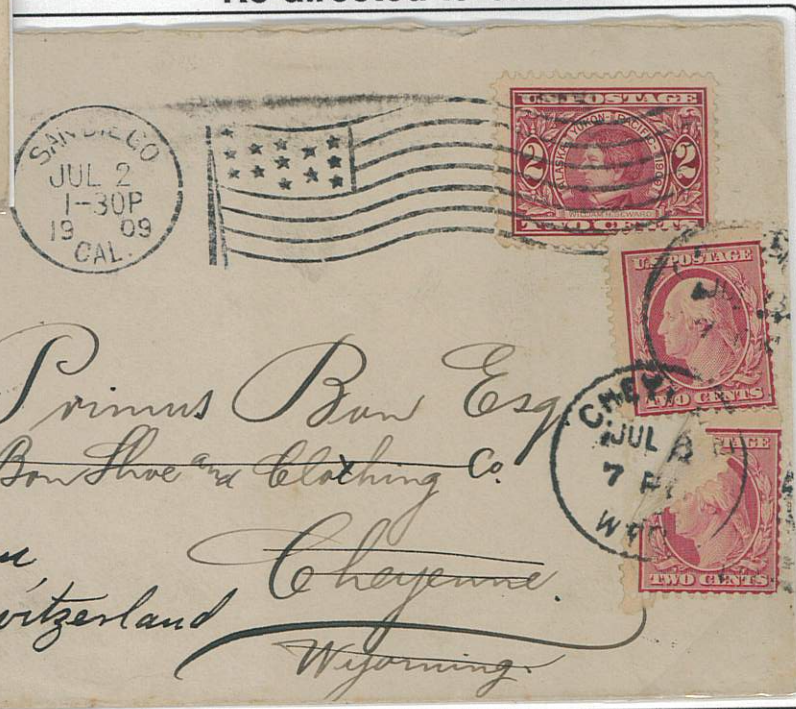 SAN DIEGO
JUL 2
1-30P
19 09
CAL.
U.S. POSTAGE
ALASKA-YUKON-PACIFIC-1909
2 2
WILLIAM H. SEWARD
TWO CENTS
U.S. POSTAGE
TWO CENTS
CHEY
JUL
7 P
WYO
TWO CENTS
Primus Bon Esq
Bon Shoe and Clothing Co.
Cheyenne.
Switzerland
Wyoming.